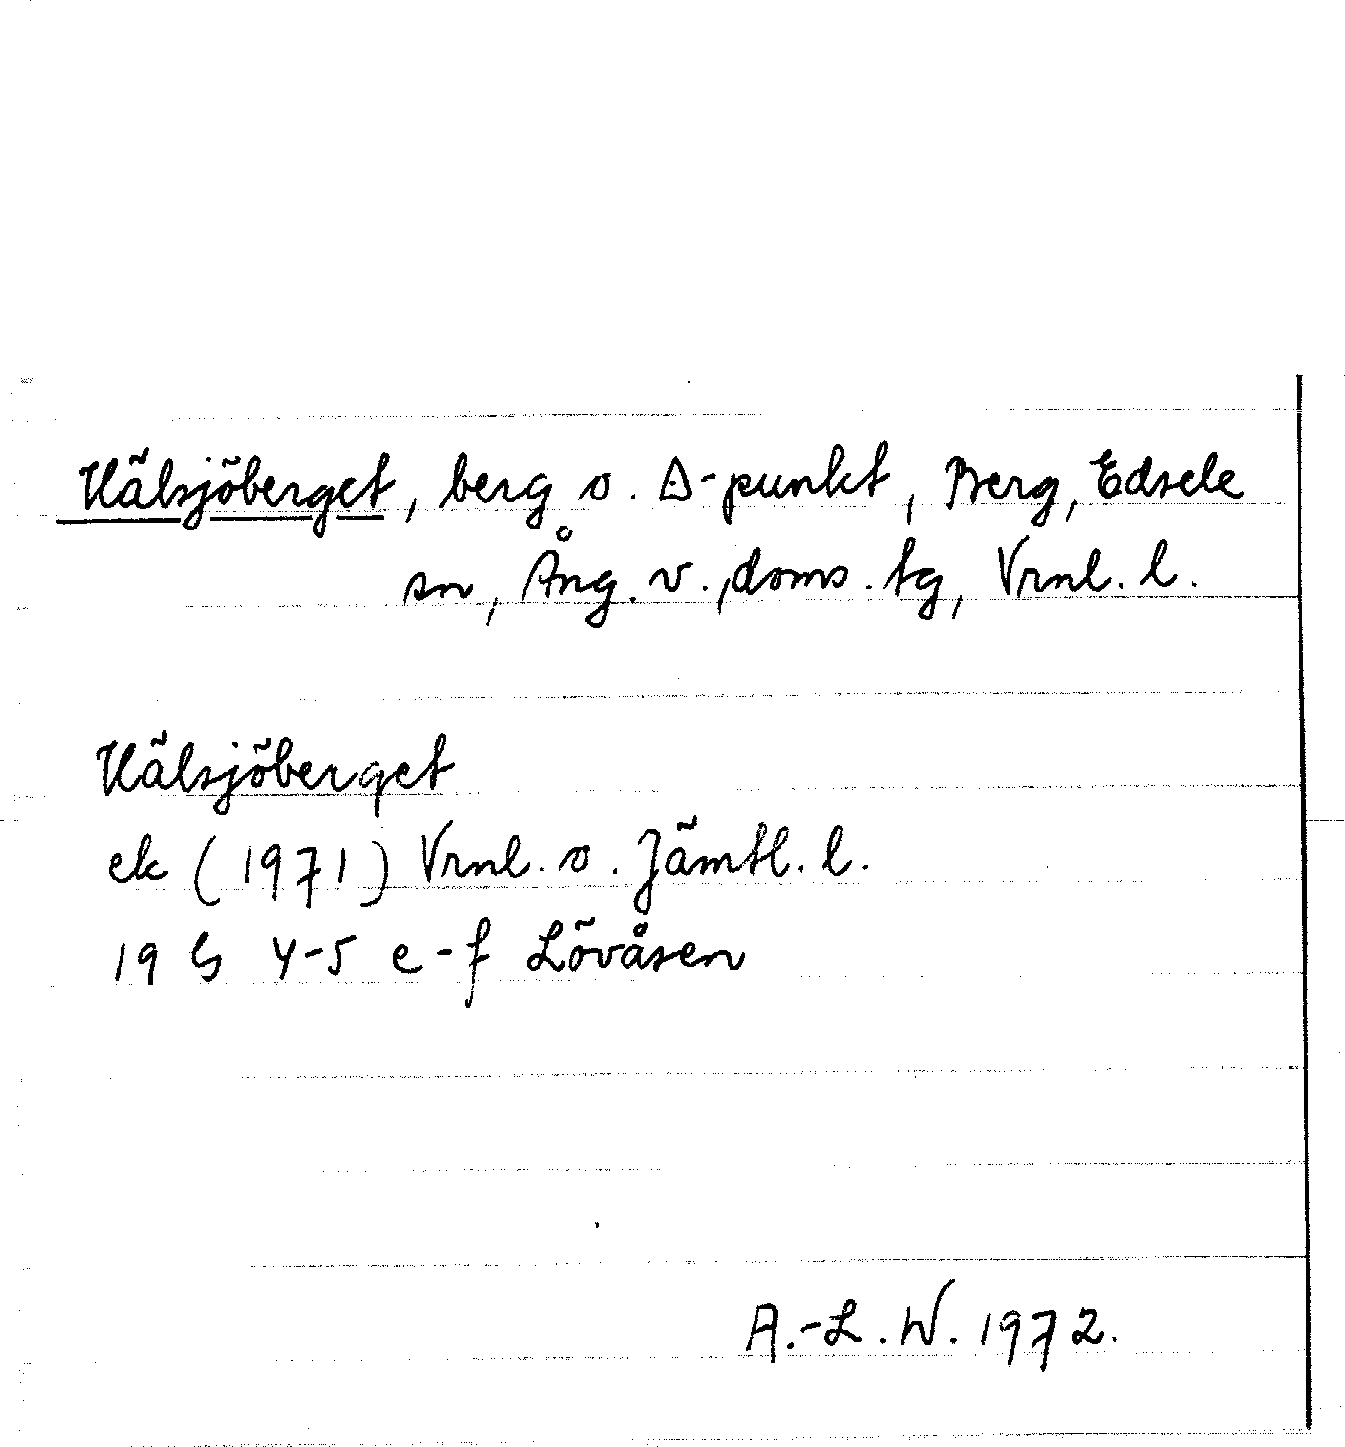 Hälsjöberget, berg o. Δ-punkt, Berg, Edsele
sn, Ång. v. doms. tg, Vrnl. l.
Hälsjöberget
ek (1971) Vrnl. o. Jämtl. l.
19 G 4-5 e-f Lövåsen
A.-L. W. 1972.